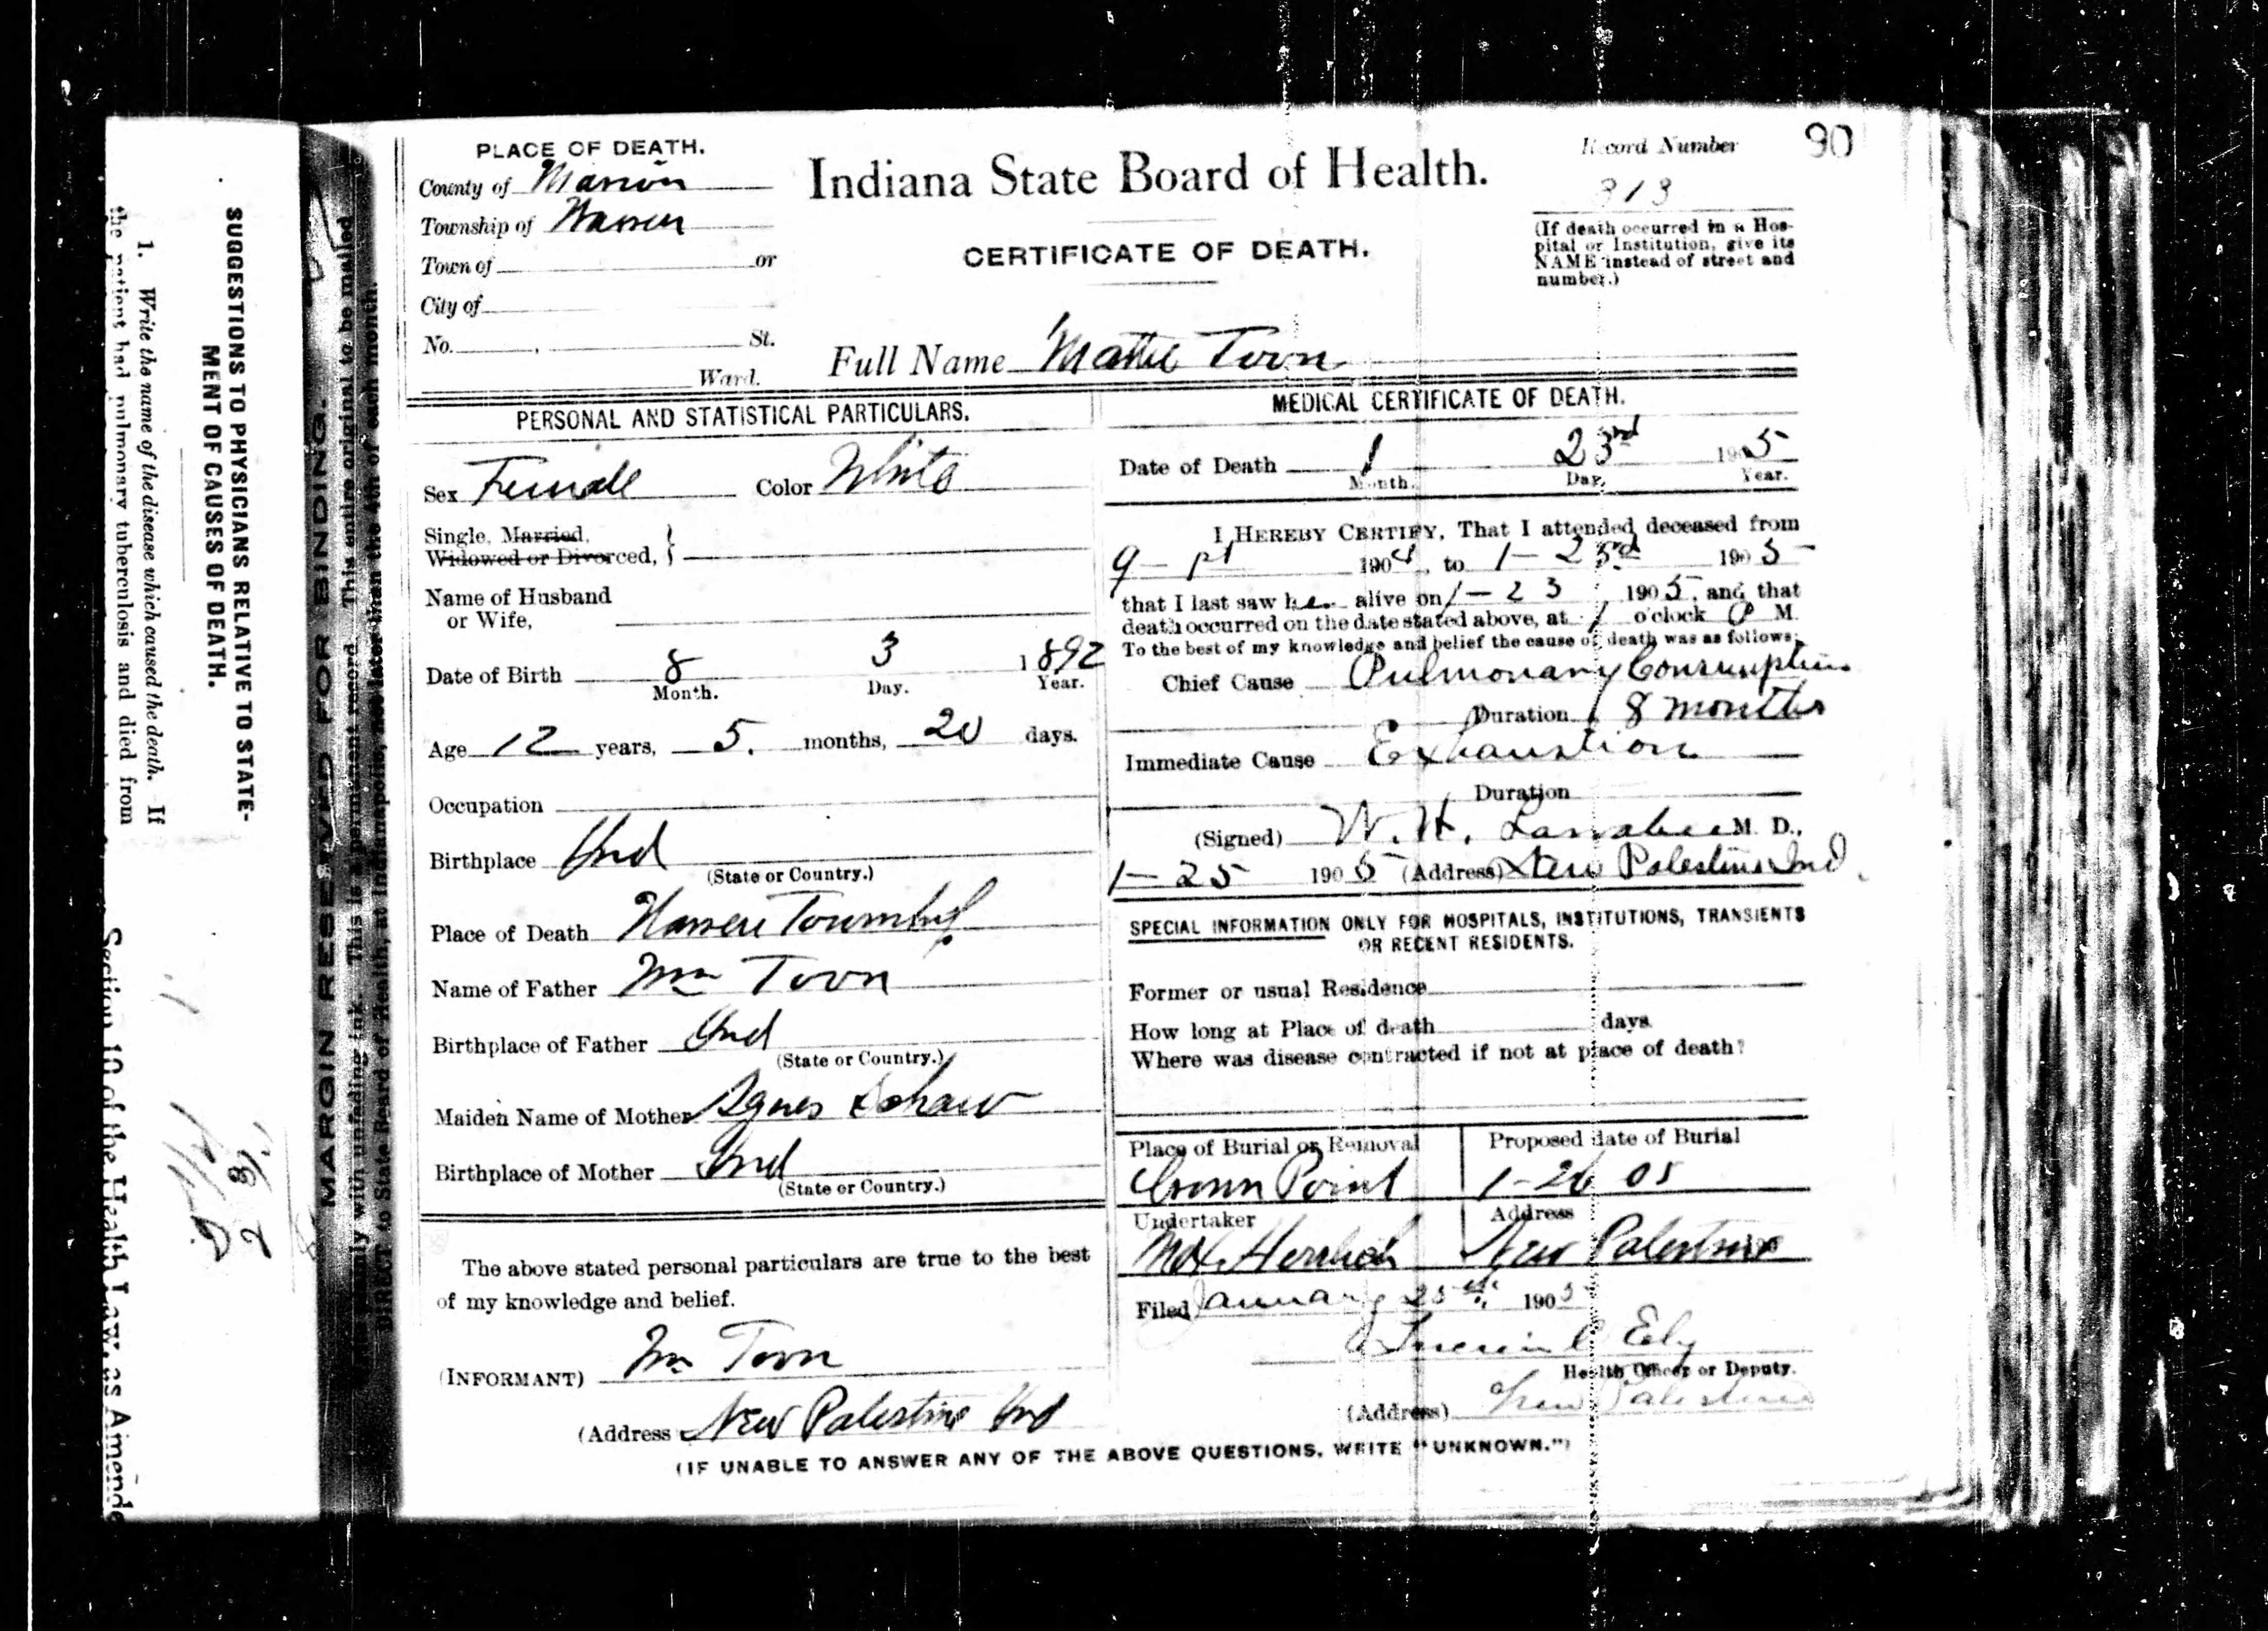 SUGGESTIONS TO PHYSICIANS RELATIVE TO STATE-
MENT OF CAUSES OF DEATH.
1. Write the name of the disease which caused the death. If
the patient had pulmonary tuberculosis and died from
Section 10 of the Health Law, as Amende
MARGIN RESERVED FOR BINDING.
with unfading ink. This is a permanent record. This entire original to be mailed
DIRECT to State Board of Health, at Indianapolis, not later than the 4th of each month.
90
PLACE OF DEATH.
County of Marion
Township of Warren
Town of or
City of
No. , St.
Ward.
Indiana State Board of Health.
CERTIFICATE OF DEATH.
Record Number
313
(If death occurred in a Hos-
pital or Institution, give its
NAME instead of street and
number.)
Full Name Mattie Toon
PERSONAL AND STATISTICAL PARTICULARS.
Sex Female Color White
Single, Married,
Widowed or Divorced, }
Name of Husband
or Wife,
Date of Birth 8 3 1892
Month. Day. Year.
Age 12 years, 5. months, 20 days.
Occupation
Birthplace Ind
(State or Country.)
Place of Death Warren Township
Name of Father Wm Toon
Birthplace of Father Ind
(State or Country.)
Maiden Name of Mother Agnes Schaw
Birthplace of Mother Ind
(State or Country.)
The above stated personal particulars are true to the best
of my knowledge and belief.
(INFORMANT) Wm Toon
(Address New Palestine Ind
MEDICAL CERTIFICATE OF DEATH.
Date of Death 1 23rd 1905
Month. Day. Year.
I HEREBY CERTIFY, That I attended deceased from
9 - 1st 1904, to 1 - 23rd 1905
that I last saw her alive on 1 - 23 1905, and that
death occurred on the date stated above, at 1 o'clock P M.
To the best of my knowledge and belief the cause of death was as follows:
Chief Cause Pulmonary Consumption
Duration 8 months
Immediate Cause Exhaustion
Duration
(Signed) W. H. Larrabee M. D.,
1 - 25 1905 (Address) New Palestine Ind.
SPECIAL INFORMATION ONLY FOR HOSPITALS, INSTITUTIONS, TRANSIENTS
OR RECENT RESIDENTS.
Former or usual Residence
How long at Place of death days
Where was disease contracted if not at place of death?
Place of Burial or Removal Proposed date of Burial
Crown Point 1-26 05
Undertaker Address
New Palestine
Filed January 25th, 1905
Ely
Health Officer or Deputy.
(Address) New Palestine
(IF UNABLE TO ANSWER ANY OF THE ABOVE QUESTIONS, WRITE "UNKNOWN.")